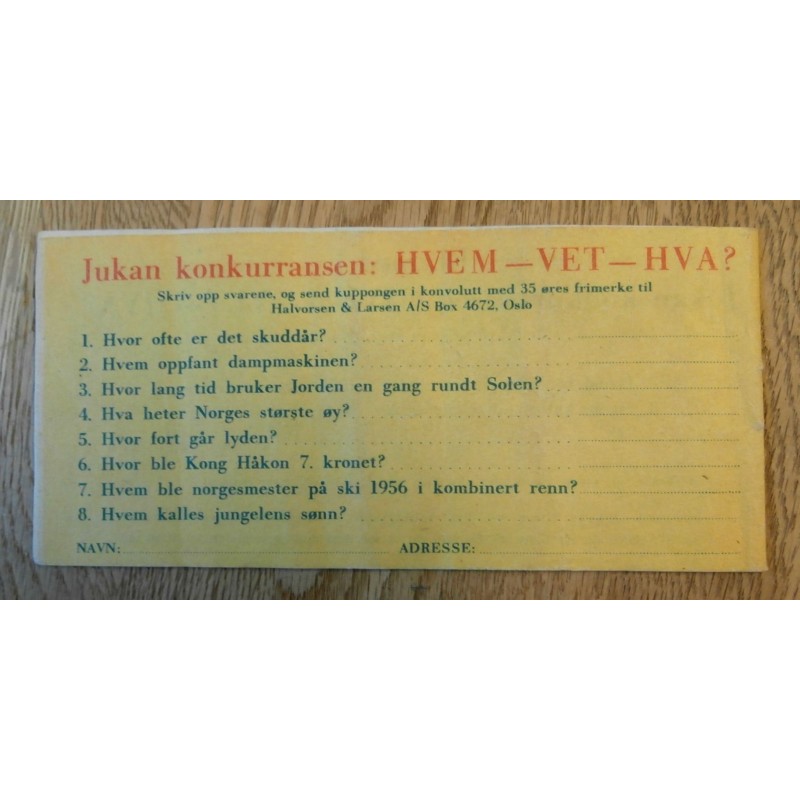 Jukan konkurransen: HVEM — VET — HVA?
Skriv opp svarene, og send kuppongen i konvolutt med 35 øres frimerke til
Halvorsen & Larsen A/S Box 4672, Oslo
1. Hvor ofte er det skuddår?
2. Hvem oppfant dampmaskinen?
3. Hvor lang tid bruker Jorden en gang rundt Solen?
4. Hva heter Norges største øy?
5. Hvor fort går lyden?
6. Hvor ble Kong Håkon 7. kronet?
7. Hvem ble norgesmester på ski 1956 i kombinert renn?
8. Hvem kalles jungelens sønn?
NAVN: ADRESSE: